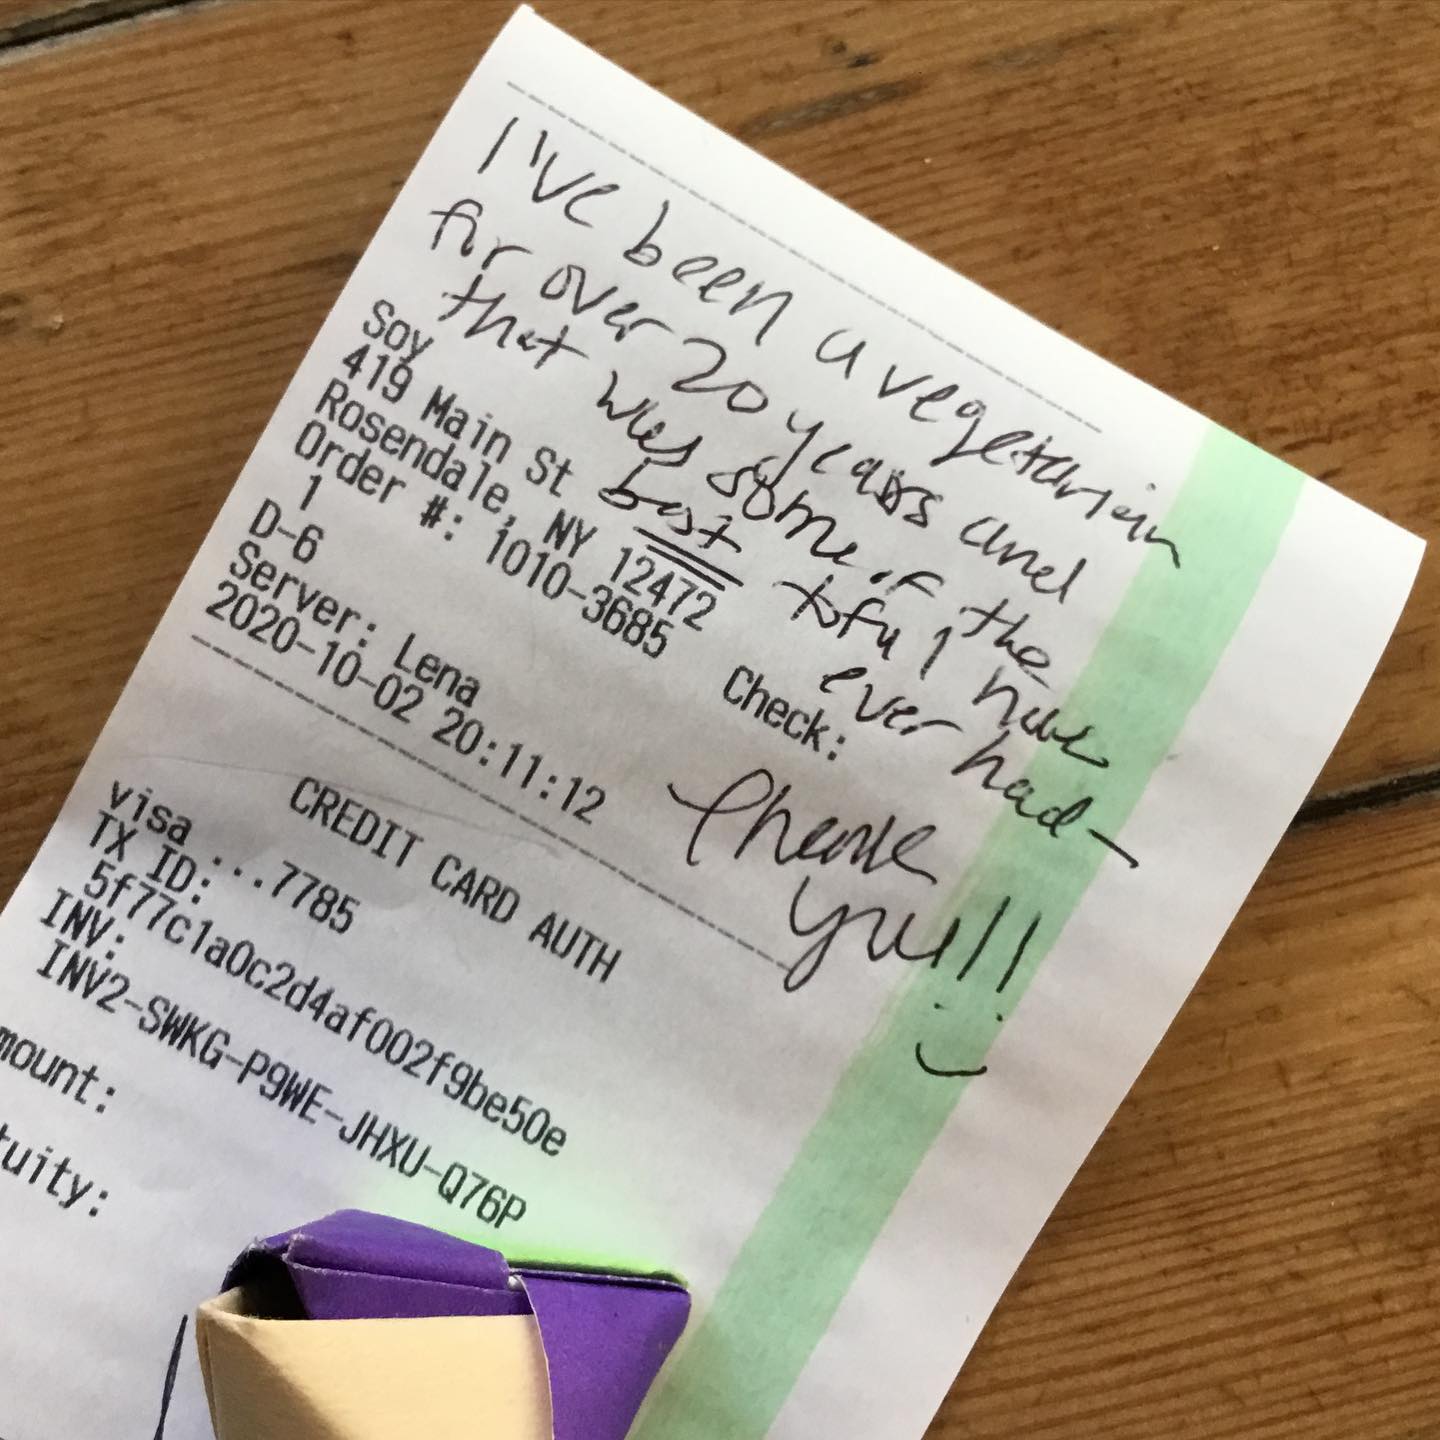 I've been a vegetarian
for over 20 years and
that was some of the
best tofu I have
ever had—
Thank
you!!
Soy
419 Main St
Rosendale, NY 12472
Order #: 1010-3685
1
Check:
D-6
Server: Lena
2020-10-02 20:11:12
CREDIT CARD AUTH
visa ...7785
TX ID:
5f77c1a0c2d4af002f9be50e
INV:
INV2-SWKG-P9WE-JHXU-Q76P
mount:
tuity: